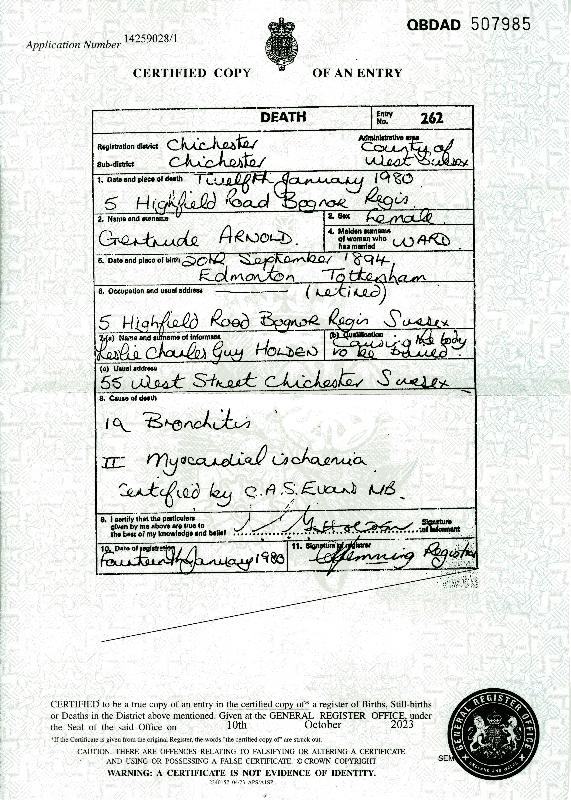 QBDAD 507985
Application Number 14259028/1
CERTIFIED COPY OF AN ENTRY
DEATH Entry No. 262
Registration district Chichester Administrative area County of
Sub-district Chichester West Sussex
1. Date and place of death Twelfth January 1980
5 Highfield Road Bognor Regis
2. Name and surname 3. Sex Female
Gertrude ARNOLD. 4. Maiden surname of woman who has married WARD
5. Date and place of birth 20th September 1894
Edmonton Tottenham
6. Occupation and usual address (retired)
5 Highfield Road Bognor Regis Sussex
7.(a) Name and surname of informant (b) Qualification Causing the body
Leslie Charles Guy HOLDEN to be buried
(c) Usual address
55 West Street Chichester Sussex
8. Cause of death
1a Bronchitis
II Myocardial ischaemia
Certified by C.A.S. Evans MB.
9. I certify that the particulars
given by me above are true to
the best of my knowledge and belief Signature of informant
10. Date of registration 11. Signature of registrar
Fourteenth January 1980 Registrar
CERTIFIED to be a true copy of an entry in the certified copy of* a register of Births, Still-births
or Deaths in the District above mentioned. Given at the GENERAL REGISTER OFFICE, under
the Seal of the said Office on 10th October 2023
*If the Certificate is given from the original Register, the words "the certified copy of" are struck out.
CAUTION. THERE ARE OFFENCES RELATING TO FALSIFYING OR ALTERING A CERTIFICATE
AND USING OR POSSESSING A FALSE CERTIFICATE. © CROWN COPYRIGHT
WARNING: A CERTIFICATE IS NOT EVIDENCE OF IDENTITY.
GENERAL REGISTER OFFICE
ENGLAND AND WALES